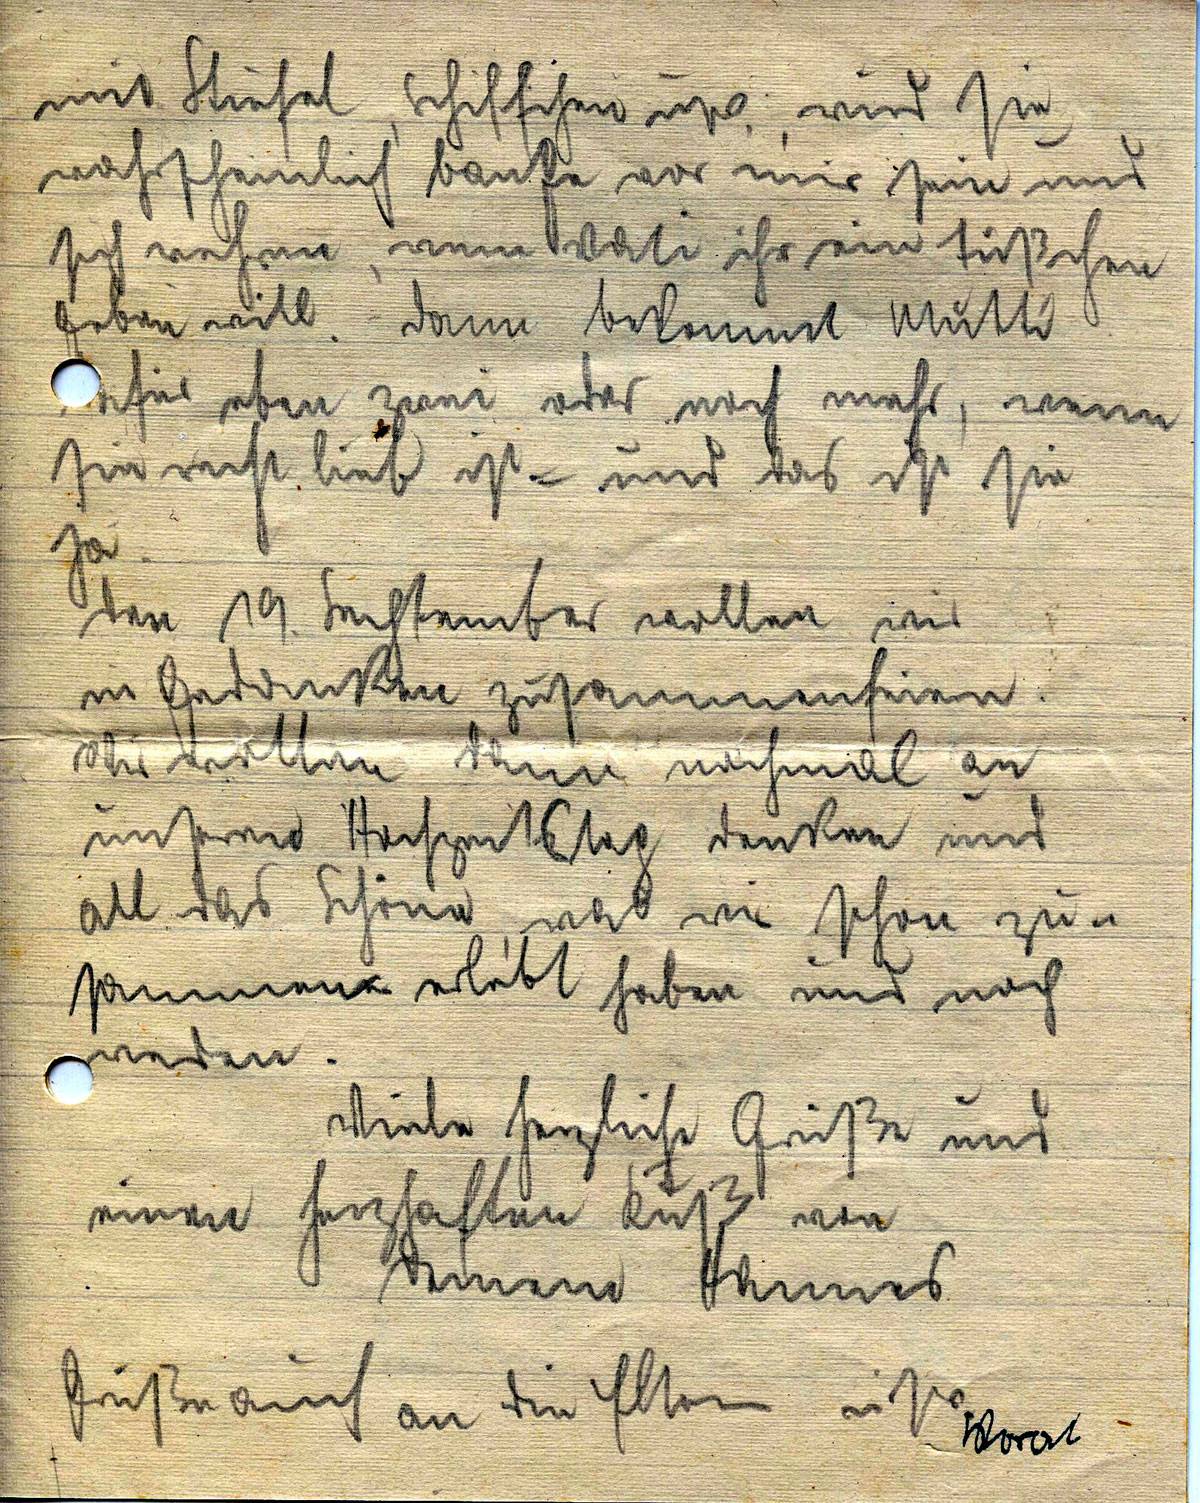 mit Stiefel, Schiffchen usw., wird sie
wahrscheinlich bange vor mir sein und
sich wehren, wenn Vati ihr ein Küßchen
geben will. Dann bekommt Mutti
dafür eben zwei oder noch mehr, wenn
sie recht lieb ist – und das ist sie
ja.
Den 19. September wollen wir
in Gedanken zusammenfeiern.
Wir wollen dann nochmal an
unseren Hochzeitstag denken und
all das Schöne, was wir schon zu-
sammen erlebt haben und noch
werden.
Viele herzliche Grüße und
einen herzhaften Kuß von
Deinem Hannes
Grüße auch an die Eltern usw.